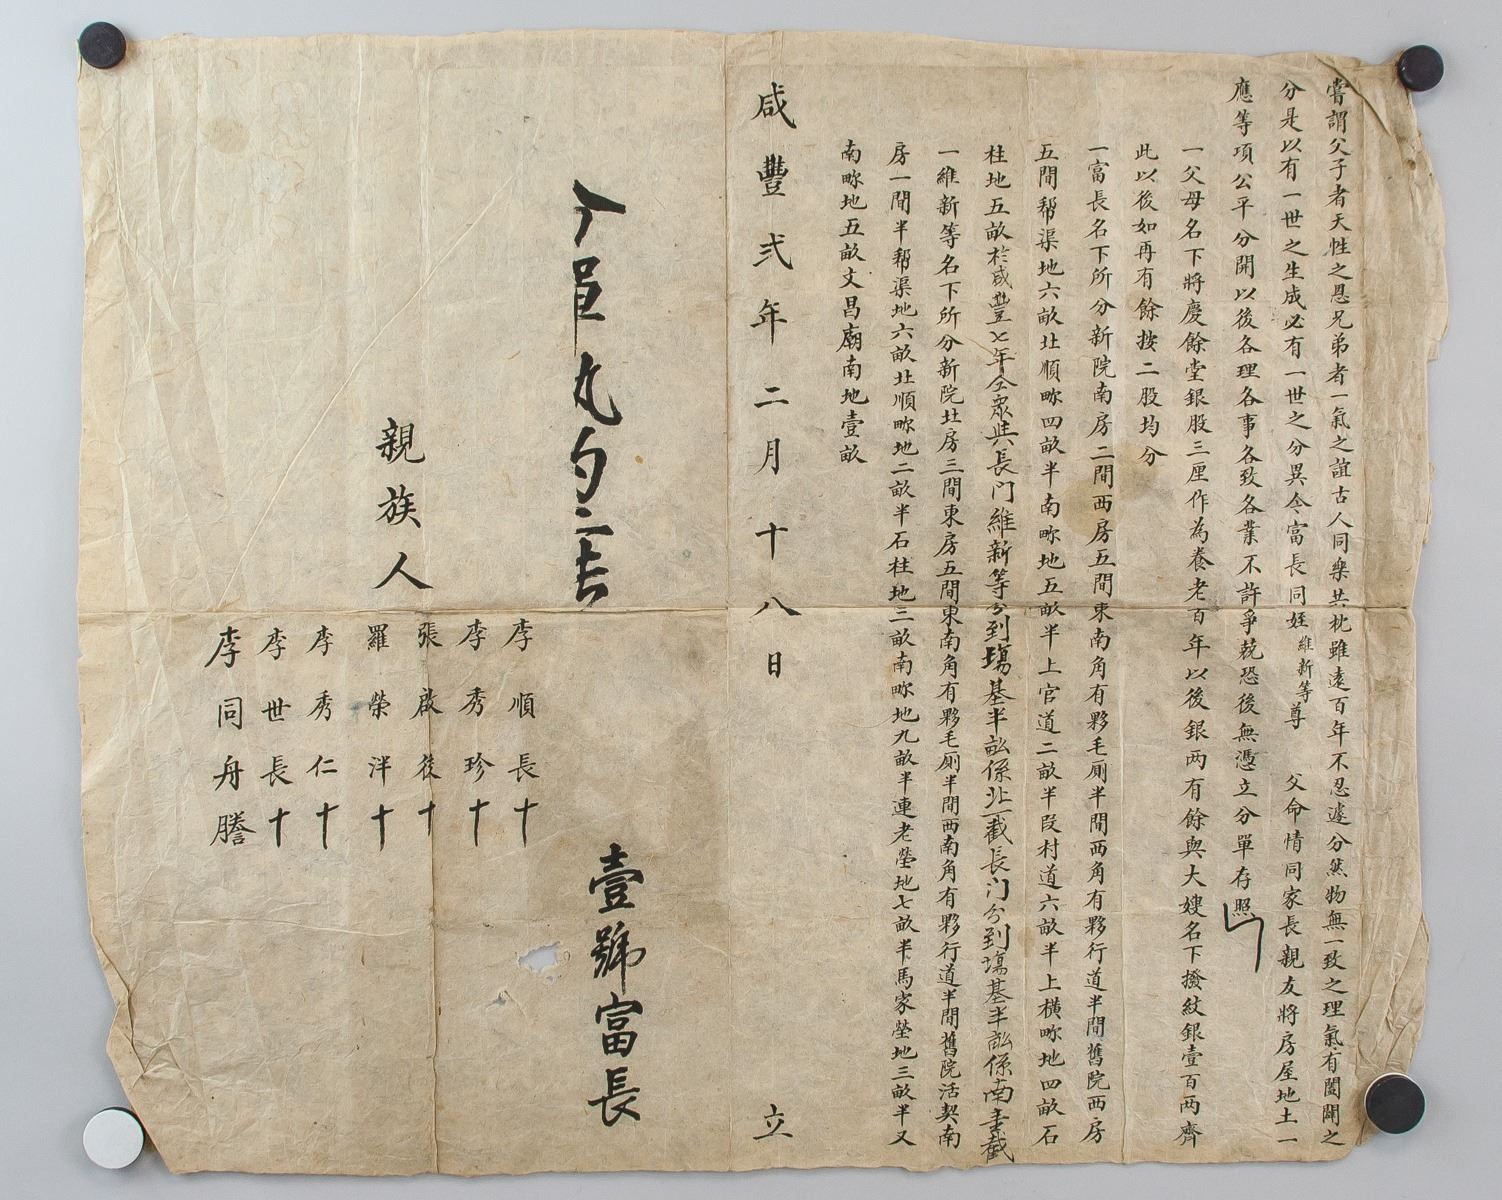 嘗謂父子者天性之恩兄弟者一氣之誼古人同樂共枕雖遠百年不忍遽分然物無一致之理氣有闔闢之
分是以有一世之生成必有一世之分異今富長同姪維新等尊 父命情同家長親友將房屋地土一
應等項公平分開以後各理各事各致各業不許爭競恐後無憑立分單存照
一父母名下將慶餘堂銀股三厘作為養老百年以後銀兩有餘與大嫂名下撥紋銀壹百兩齊
此以後如再有餘按二股均分
一富長名下所分新院南房二間西房五間東南角有夥毛厠半間西角有夥行道半間舊院西房
五間帮渠地六畝北順畛四畝半南畛地五畝半上官道二畝半段村道六畝半上橫畛地四畝石
柱地五畝於咸豐七年仝眾與長门維新等分到塲基半畝係北一截長门分到塲基半畝係南半截
一維新等名下所分新院北房三間東房五間東南角有夥毛厠半間西南角有夥行道半間舊院活契南
房一間半帮渠地六畝北順畛地二畝半石柱地三畝南畛地九畝半連老塋地七畝半馬家塋地三畝半又
南畛地五畝文昌廟南地壹畝
咸豐弍年二月十八日 立
壹號富長
親族人
李順長十
李秀珍十
張啟後十
羅榮泮十
李秀仁十
李世長十
李同舟謄